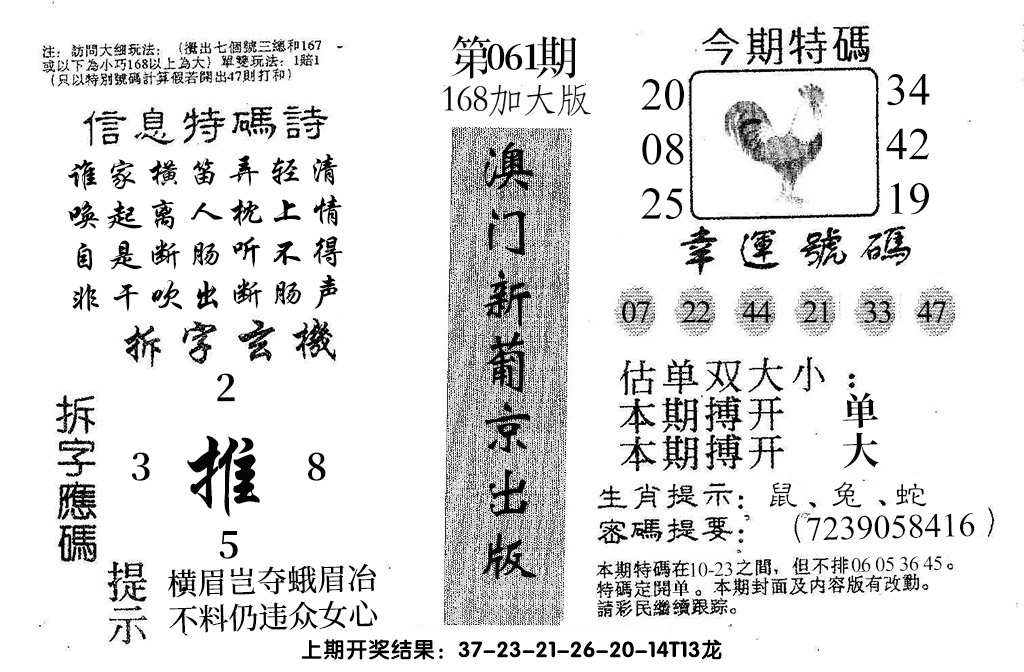 注：訪問大细玩法：（攪出七個號三總和167
或以下為小巧168以上為大）單雙玩法：1賠1
（只以特別號碼計算假若開出47則打和）
信息特碼詩
谁家横笛弄轻清
唤起离人枕上情
自是断肠听不得
非干吹出断肠声
拆字玄機
拆字應碼
2
3 推 8
5
提示
横眉岂夺蛾眉冶
不料仍违众女心
第061期
168加大版
澳门新葡京出版
今期特碼
20 34
08 42
25 19
幸運號碼
07 22 44 21 33 47
估单双大小：
本期搏开 单
本期搏开 大
生肖提示：鼠、兔、蛇
密碼提要：（7239058416）
本期特碼在10-23之間，但不排06 05 36 45。
特碼定開单。本期封面及内容版有改動。
請彩民繼續跟踪。
上期开奖结果：37-23-21-26-20-14T13龙